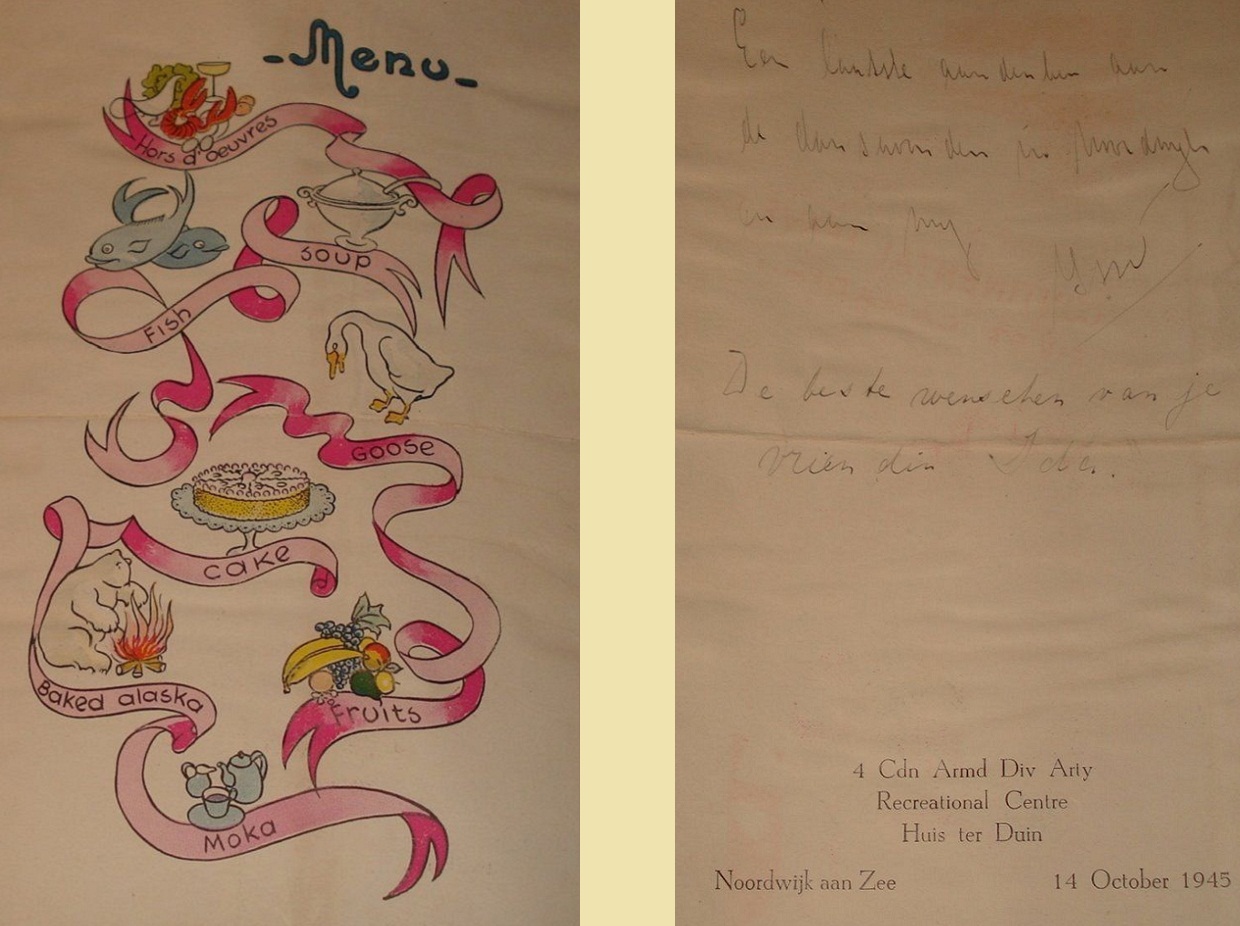 -Menu-
Hors d'oeuvres
Soup
Fish
Goose
cake
Baked alaska
Fruits
Moka
Een laatste aandenken aan
de dansavonden in Noordwijk
en aan mij
De beste wenschen van je
vriendin Ida.
4 Cdn Armd Div Arty
Recreational Centre
Huis ter Duin
Noordwijk aan Zee 14 October 1945